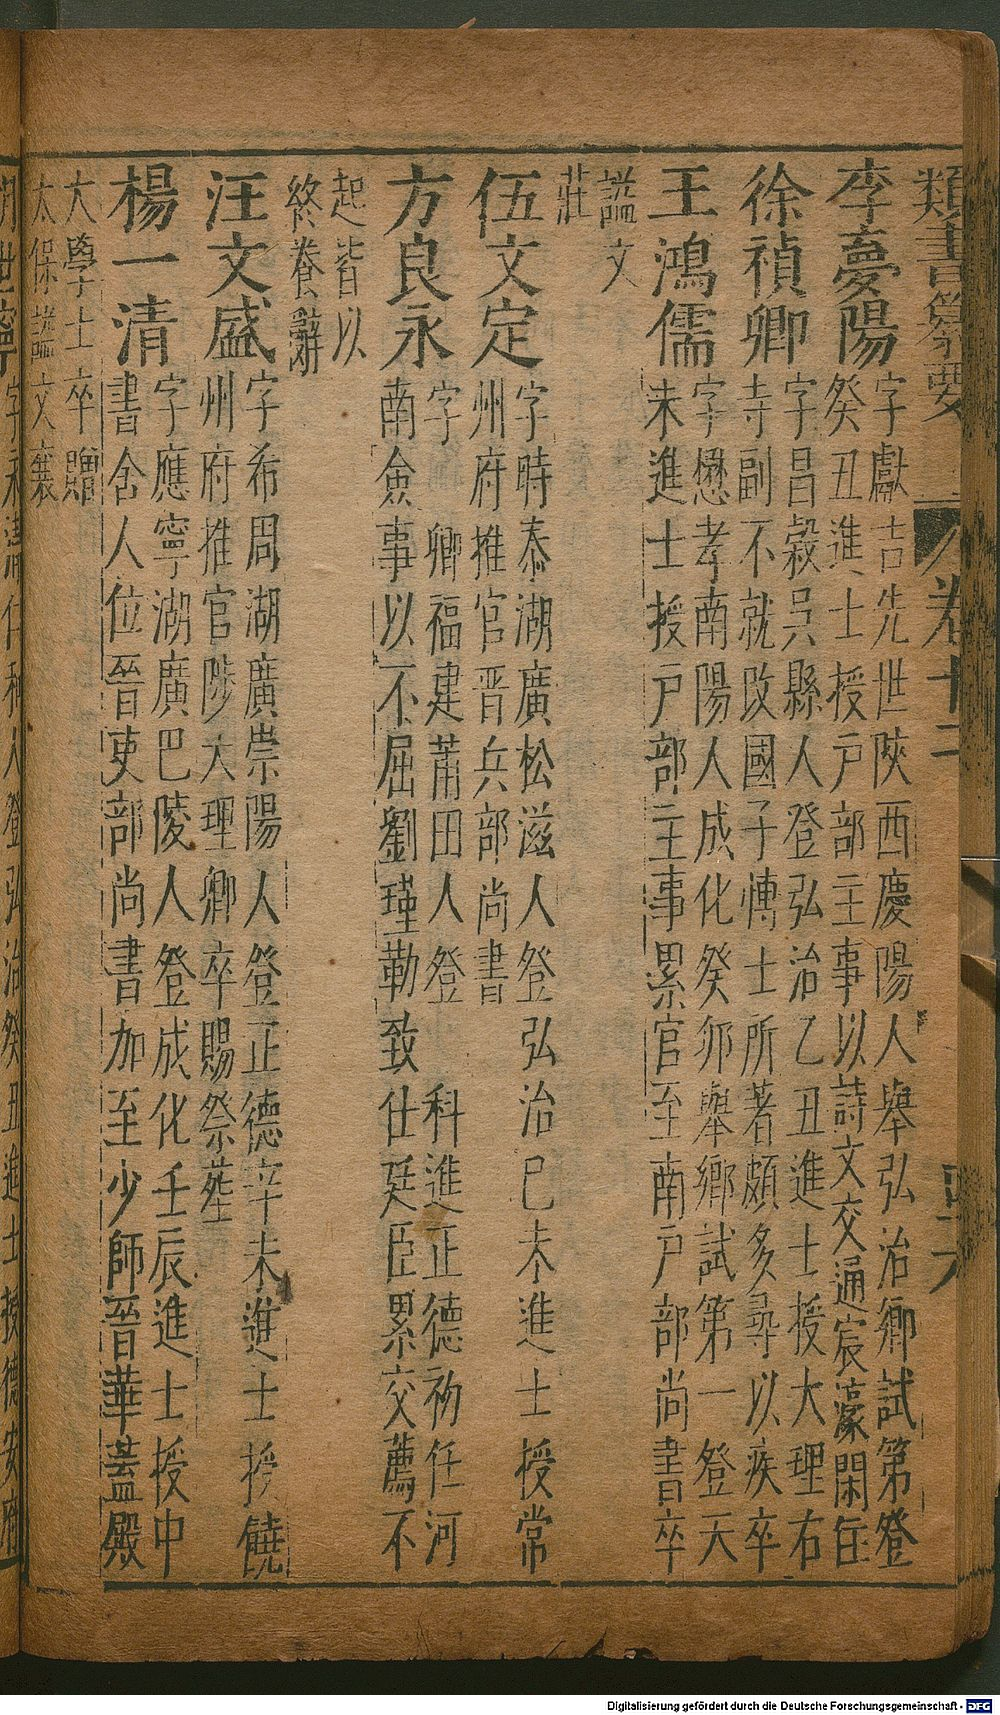 類書纂要 卷十二
李夢陽
字獻吉先世陝西慶陽人舉弘治鄉試第登
癸丑進士授戶部主事以詩文交通宸濠閑住
徐禎卿
字昌榖吳縣人登弘治乙丑進士授大理右
寺副不就改國子博士所著頗多尋以疾卒
王鴻儒
字懋孝南陽人成化癸夘舉鄉試第一登天
未進士授戶部主事累官至南戶部尚書卒
謚文
莊
伍文定
字時泰湖廣松滋人登弘治巳未進士授常
州府推官晋兵部尚書
方良永
字 卿福建莆田人登 科進正德初任河
南僉事以不屈劉瑾勒致仕廷臣累交薦不
起皆以
終養辭
汪文盛
字希周湖廣崇陽人登正德辛未進士授饒
州府推官陟大理卿卒賜祭塟
楊一清
字應寧湖廣巴陵人登成化壬辰進士授中
書舍人位晉吏部尚書加至少師晉華蓋殿
大學士卒贈
太保謚文襄
世寧
字永清仁和人登弘治癸丑進士授德安府
Digitalisierung gefördert durch die Deutsche Forschungsgemeinschaft - DFG